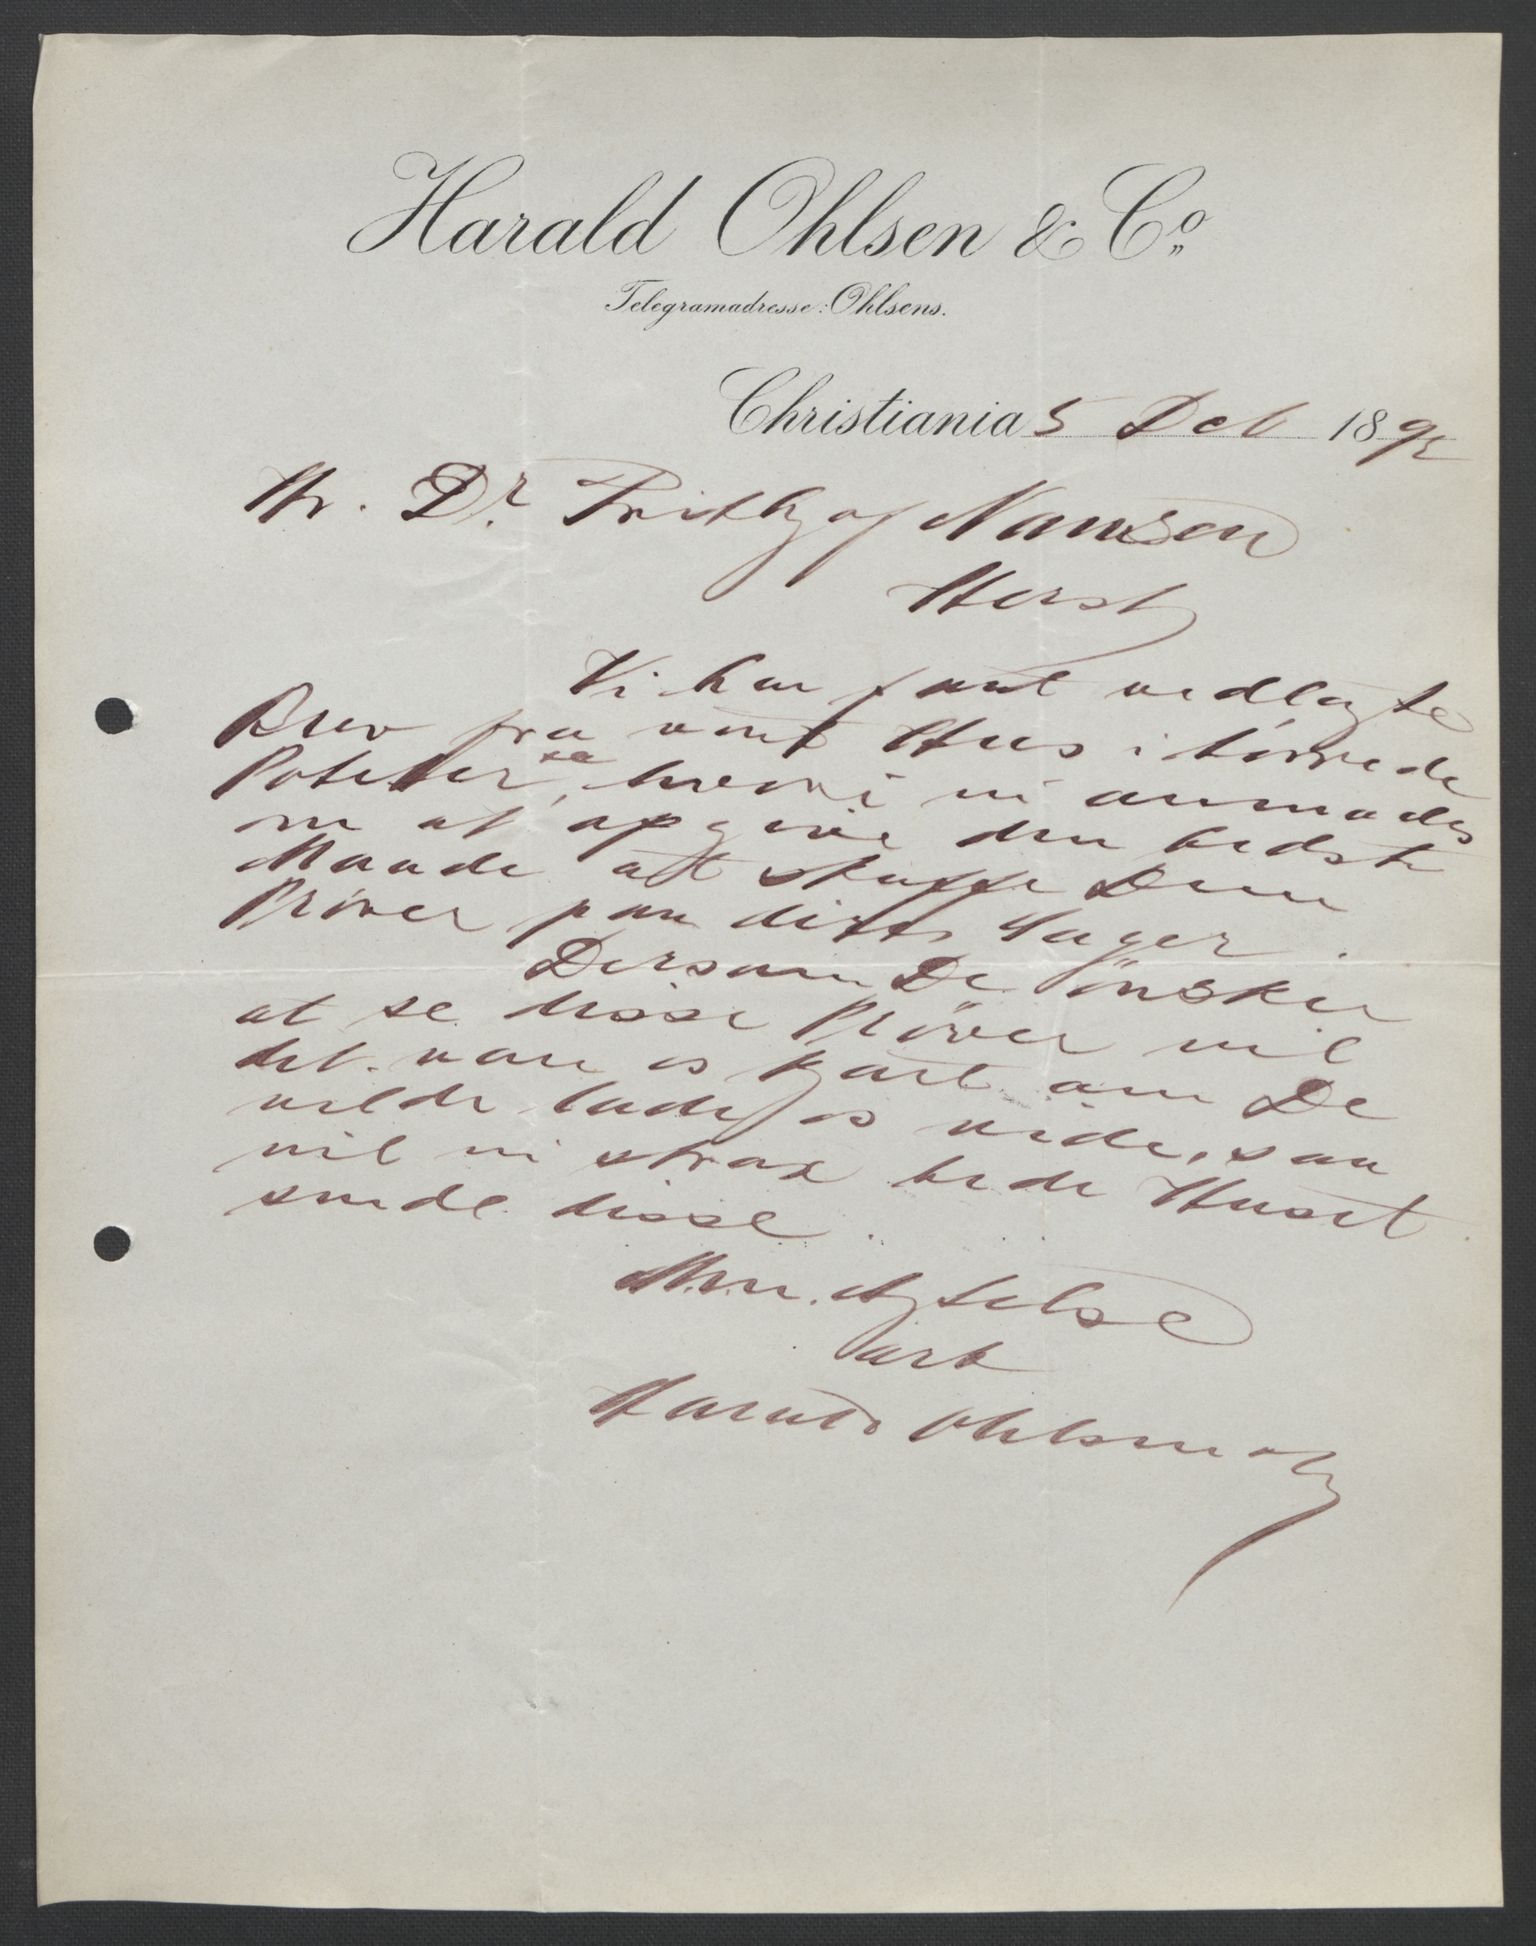 Harald Ohlsen & Co
Telegramadresse: Ohlsens.
Christiania 5 Dcb 1892
Hr. Dr. Frithjof Nansen
Herst
Vi har faaet vedlagte
Brev fra vort Hus i törrede
Poteter, hvori vi anmodes
om at opgive den bedste
Maade att skaffe Dem
Pröver paa dette Lager.
Dersom De önsker
at se disse Pröver vil
det være os kjært om De
vilde lade os vide, saa
vil vi strax bede Huset
sende disse.
M. Agtelse
ærb
Harald Ohlsen & Co